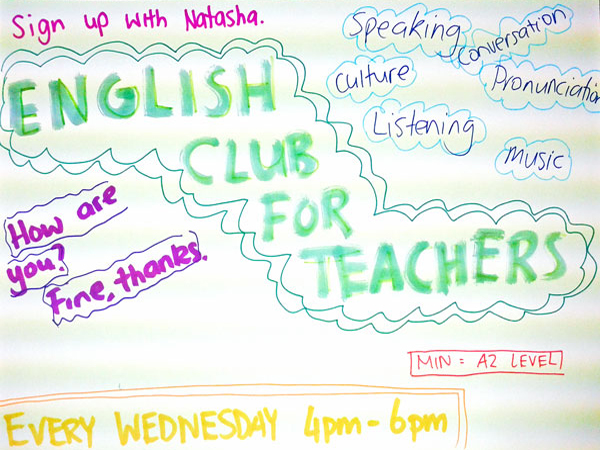 Sign up with Natasha.
Speaking
Conversation
Culture
Pronunciation
Listening
Music
ENGLISH
CLUB
FOR
TEACHERS
How are
you?
Fine, thanks.
MIN = A2 LEVEL
EVERY WEDNESDAY 4pm - 6pm